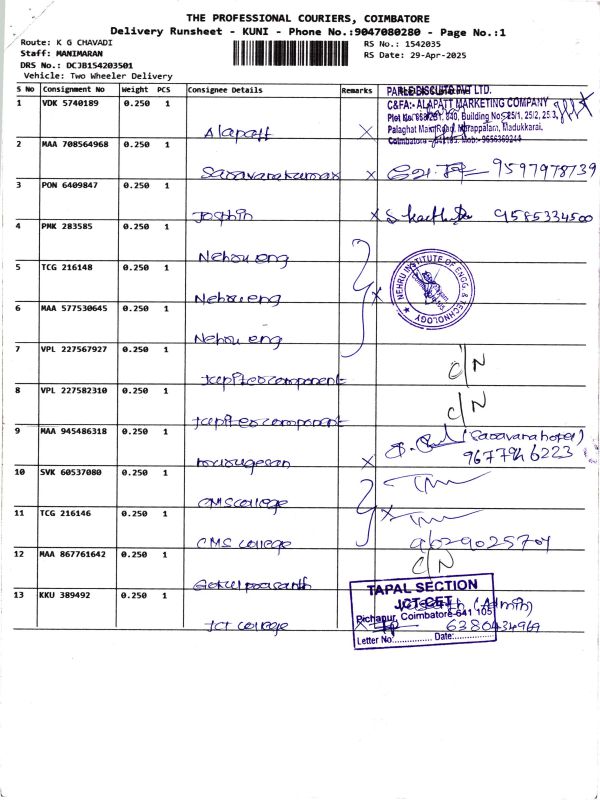 THE PROFESSIONAL COURIERS, COIMBATORE
Delivery Runsheet - KUNI - Phone No.:9047080280 - Page No.:1
Route: K G CHAVADI
RS No.: 1542035
Staff: MANIMARAN
RS Date: 29-Apr-2025
DRS No.: DCJB154203501
Vehicle: Two Wheeler Delivery
S No Consignment No Weight PCS Consignee Details Remarks
PARLE BISCUITS PVT LTD.
C&FA:- ALAPATT MARKETING COMPANY
Building No: 25/1, 25/2, 25/3,
Palaghat Main Road, Marappalam, Madukkarai.
1 VDK 5740189 0.250 1
Alapatt x
2 MAA 708564968 0.250 1
Saravanakumar x 9597978739
3 PON 6409847 0.250 1
Josphin x 9585334500
4 PMK 283585 0.250 1
Nehru eng
5 TCG 216148 0.250 1
Nehru eng x
NEHRU INSTITUTE OF ENGG. & TECHNOLOGY
6 MAA 577530645 0.250 1
Nehru eng
7 VPL 227567927 0.250 1
Jupiter component C/N
8 VPL 227582310 0.250 1
Jupiter component C/N
9 MAA 945486318 0.250 1
Murugesan x (Saravana hotel)
9677946223
10 SVK 60537080 0.250 1
CMS college
11 TCG 216146 0.250 1
CMS college x 9629025701
12 MAA 867761642 0.250 1
Gokul prasanth C/N
13 KKU 389492 0.250 1
TAPAL SECTION
JCT-CET
(Admin)
Pichanur, Coimbatore-641 105
JCT college x 6380434969
Letter No:.............. Date:..............